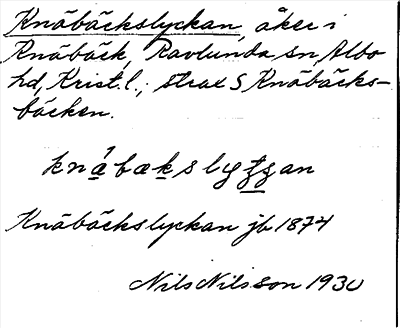 Knäbäckslyckan, åker i
Knäbäck, Ravlunda sn, Albo
hd, Krist. l., strax S Knäbäcks-
bäcken.
Knäbäckslyckan jb 1874
Nils Nilsson 1930